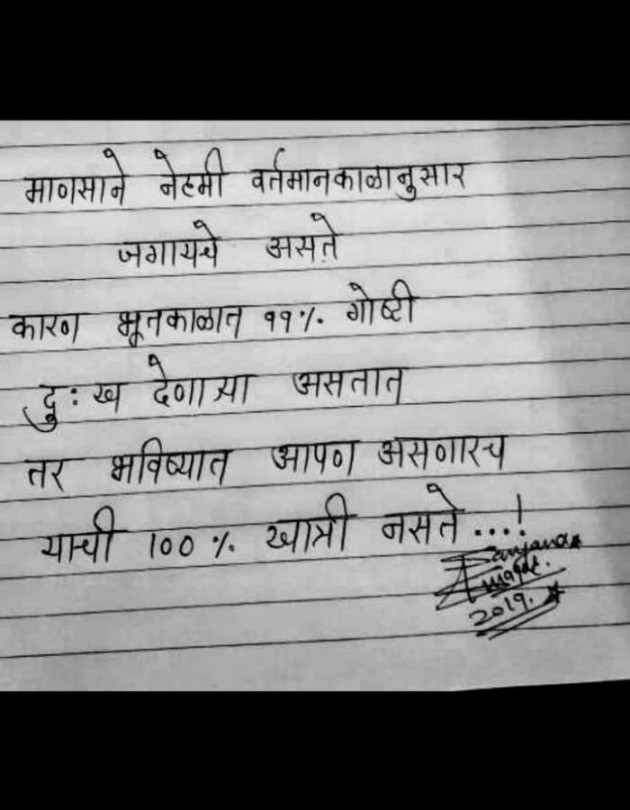 माणसाने नेहमी वर्तमानकाळानुसार
जगायचे असते
कारण भूतकाळात ११% गोष्टी
दुःख देणाऱ्या असतात
तर भविष्यात आपण असणारच
याची 100% खात्री नसते ...!
2019.